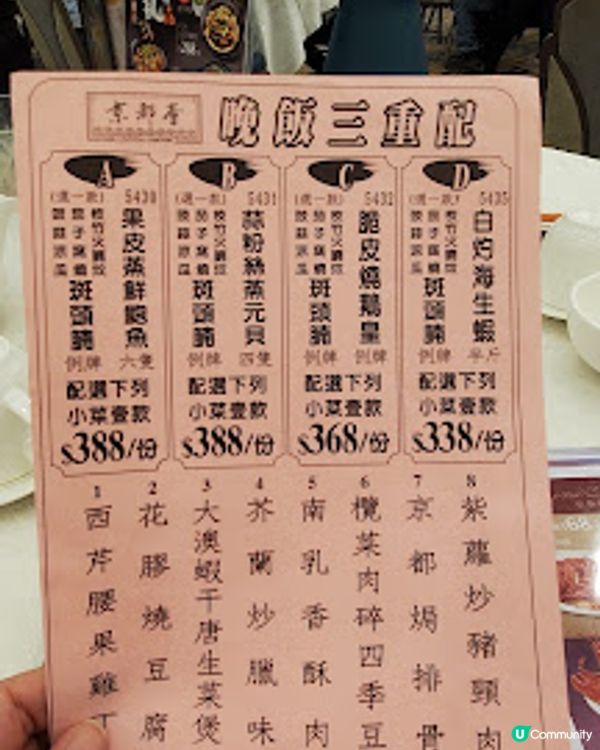 京都薈
晚飯三重配
A
(選一款) 5430
果皮蒸鮮鮑魚
六隻
枝竹火腩炆
茄子窩燒
豉蒜涼瓜
斑頭腩
例牌
配選下列
小菜壹款
$388/份
B
(選一款) 5431
蒜粉絲蒸元貝
四隻
枝竹火腩炆
茄子窩燒
豉蒜涼瓜
斑頭腩
例牌
配選下列
小菜壹款
$388/份
C
(選一款) 5432
脆皮燒鵝皇
例牌
枝竹火腩炆
茄子窩燒
豉蒜涼瓜
斑頭腩
例牌
配選下列
小菜壹款
$368/份
D
(選一款) 5435
白灼海生蝦
半斤
枝竹火腩炆
茄子窩燒
豉蒜涼瓜
斑頭腩
例牌
配選下列
小菜壹款
$338/份
1 西芹腰果雞丁
2 花膠燒豆腐
3 大澳蝦干唐生菜煲
4 芥蘭炒臘味
5 南乳香酥肉
6 欖菜肉碎四季豆
7 京都焗排骨
8 紫蘿炒豬頸肉
U Community